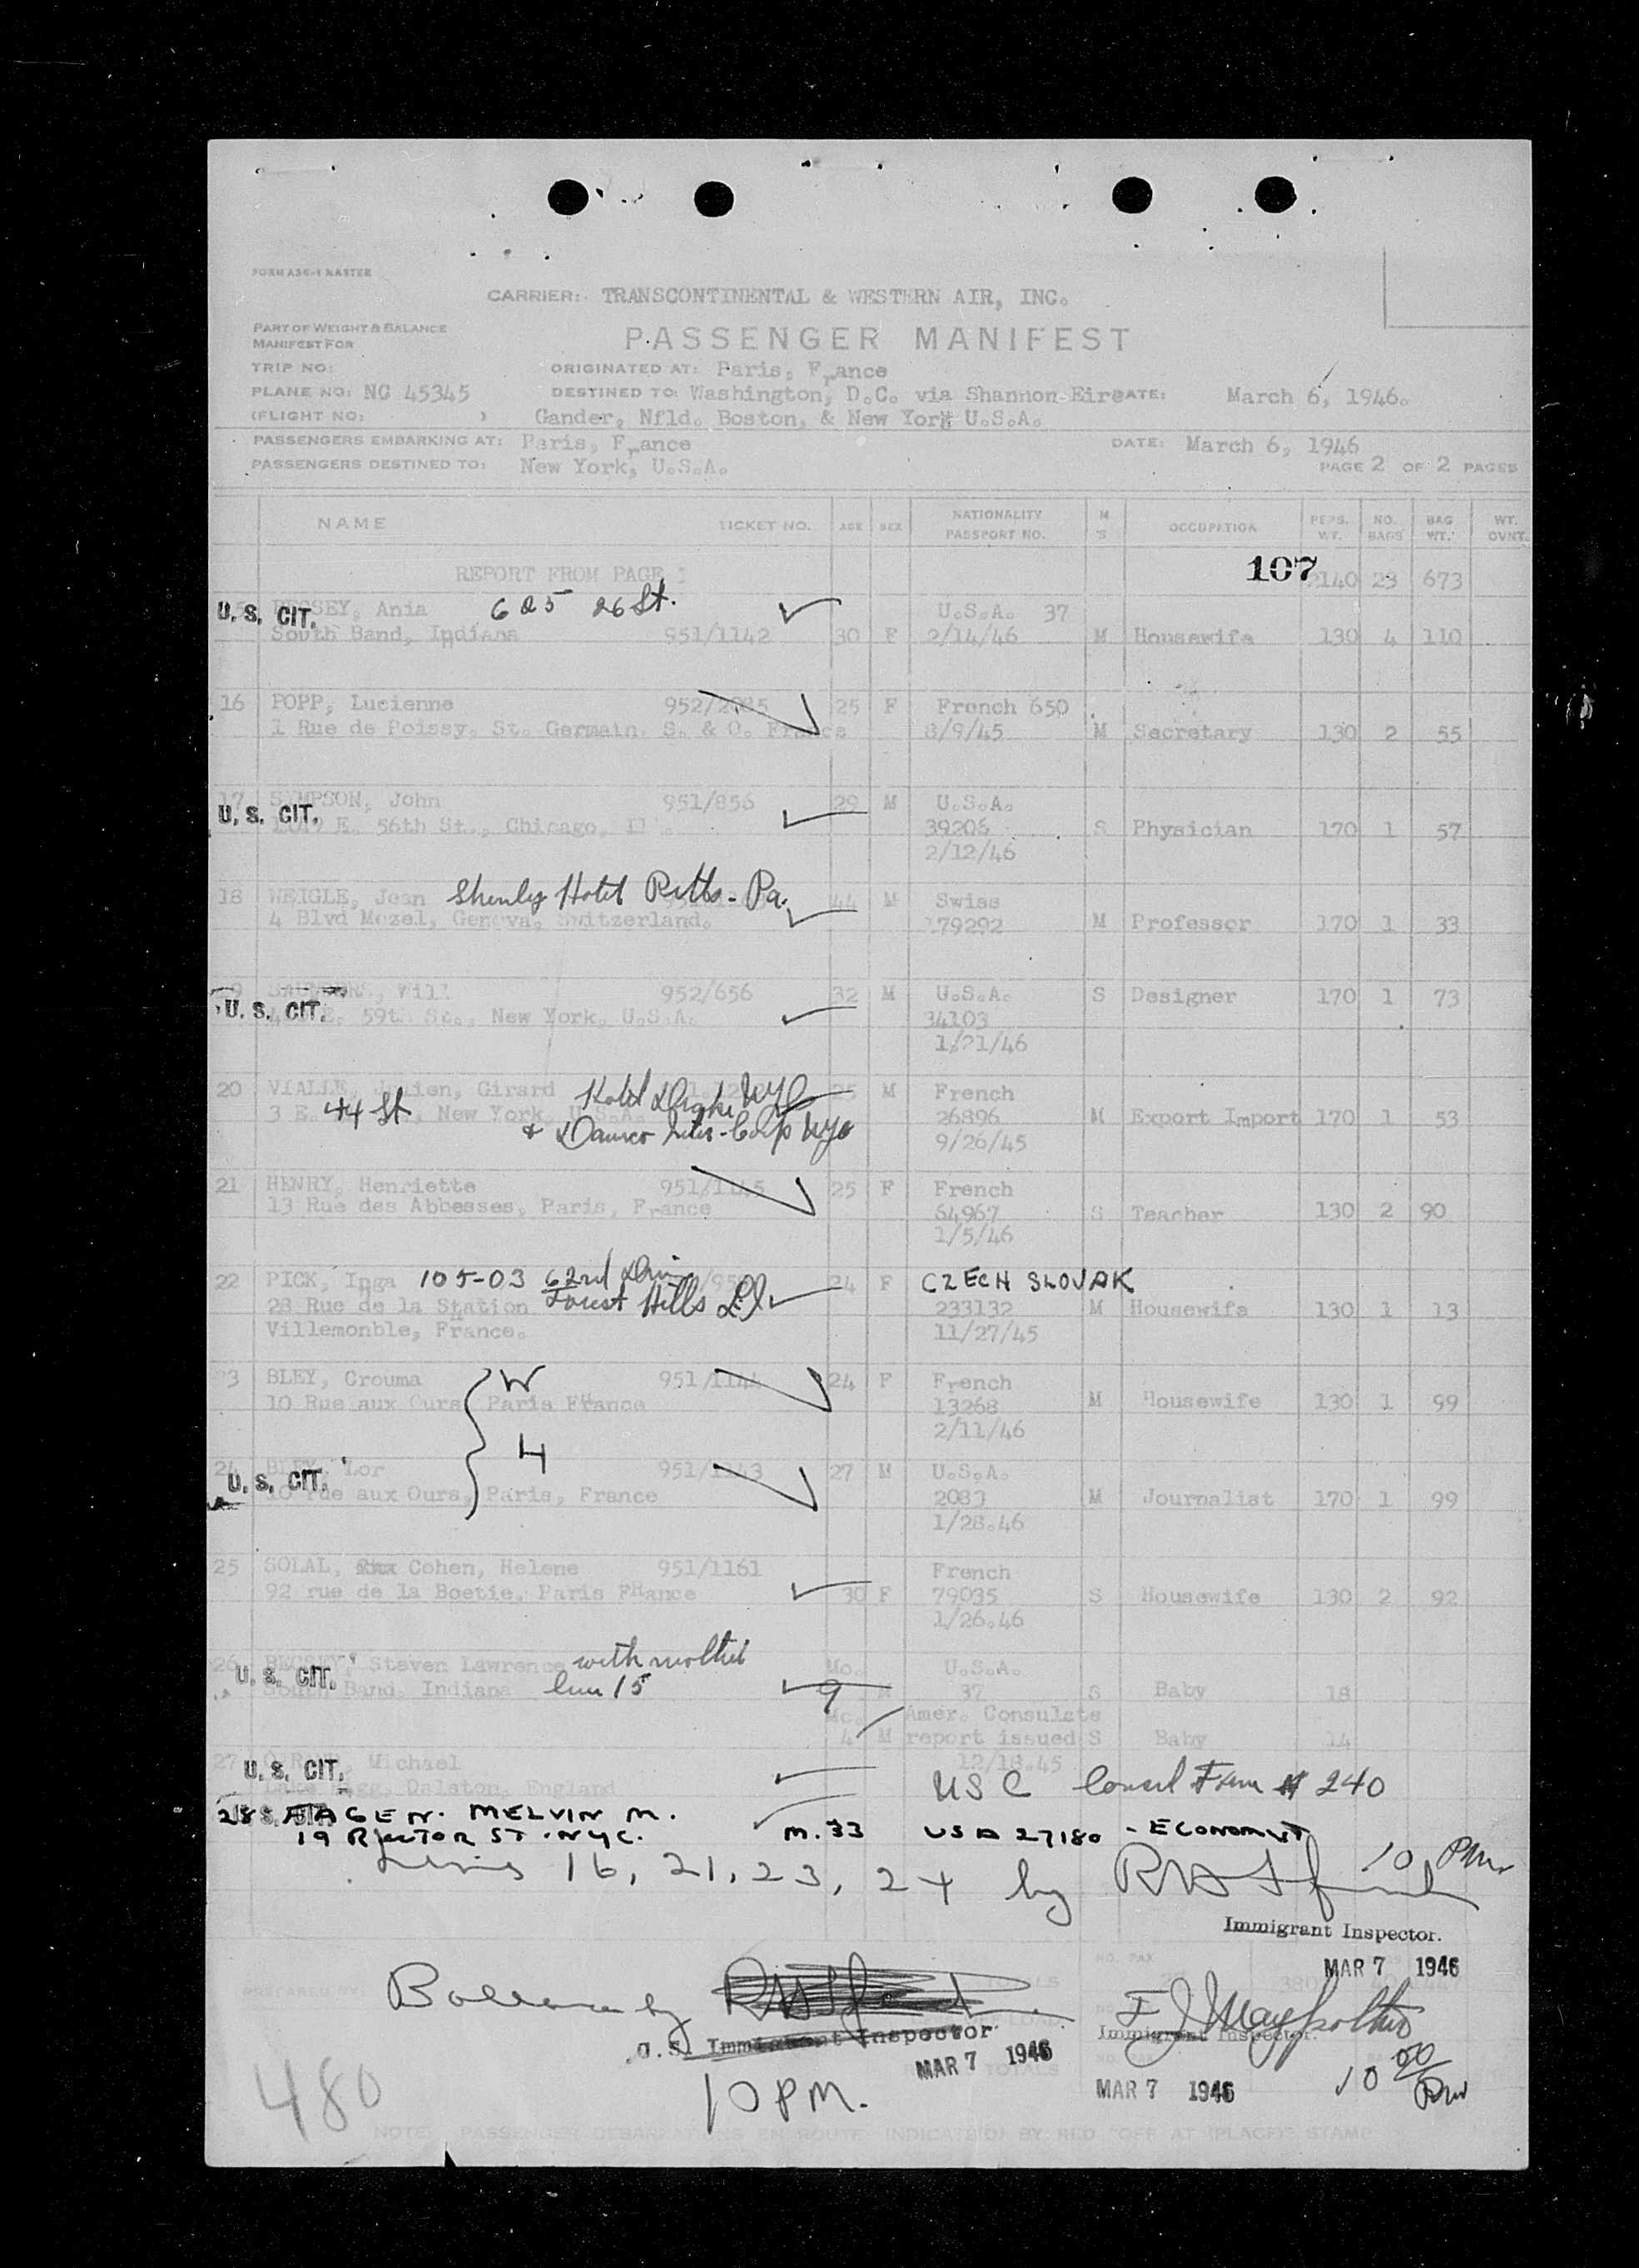 FORM A36-1 MASTER
CARRIER: TRANSCONTINENTAL & WESTERN AIR, INC.
PART OF WEIGHT & BALANCE
MANIFEST FOR
PASSENGER MANIFEST
TRIP NO: ORIGINATED AT: Paris, France
PLANE NO: NC 45345 DESTINED TO: Washington, D.C. via Shannon Eire DATE: March 6, 1946.
(FLIGHT NO: ) Gander, Nfld. Boston, & New York U.S.A.
PASSENGERS EMBARKING AT: Paris, France DATE: March 6, 1946
PASSENGERS DESTINED TO: New York, U.S.A. PAGE 2 OF 2 PAGES
NAME TICKET NO. AGE SEX NATIONALITY PASSPORT NO. M S OCCUPATION PERS. WT. NO. BAGS BAG WT. WT. OVNT.
REPORT FROM PAGE 1 107 2140 23 673
U.S. CIT. Ania 625 26 St. U.S.A. 37
South Band, Indiana 951/1142 30 F 2/14/46 M Housewife 130 4 110
16 POPP, Lucienne 952/ 25 F French 650
1 Rue de Poissy, St. Germain. S. & O. France 8/9/45 M Secretary 130 2 55
17 SIMPSON, John 951/856 29 M U.S.A.
U.S. CIT. E. 56th St., Chicago, 39206 S Physician 170 1 57
2/12/46
18 WEIGLE, Jean Shenley Hotel Pitts- Pa. 44 M Swiss
4 Blvd Mozel, Geneva, Switzerland. 79292 M Professor 170 1 33
19 Will 952/656 32 M U.S.A. S Designer 170 1 73
U.S. CIT. E. 59th St., New York, U.S.A. 34103
1/21/46
20 VIALLE, Julien, Girard Hotel NYC M French
3 E. 44 St New York, U.S.A. 26896 M Export Import 170 1 53
& Corp NYC 9/26/45
21 HENRY, Henriette 951/1145 25 F French
13 Rue des Abbesses, Paris, France 64967 S Teacher 130 2 90
1/5/46
22 PICK, Inga 105-03 62nd 24 F CZECH SLOVAK
28 Rue de la Station Forest Hills LI 233132 M Housewife 130 1 13
Villemonble, France. 11/27/45
23 BLEY, Crouma W 951/1144 24 F French
10 Rue aux Ours Paris France 13268 M Housewife 130 1 99
2/11/46
H
24 BLEY, Lor 951/1143 27 M U.S.A.
U.S. CIT. 10 rue aux Ours, Paris, France 2083 M Journalist 170 1 99
1/28.46
25 SOLAL, Cohen, Helene 951/1161 French
92 rue de la Boetie, Paris FRance 30 F 79035 S Housewife 130 2 92
1/26.46
26 Steven Lawrence with mother Mo. U.S.A.
U.S. CIT. South Band, Indiana line 15 9 37 S Baby 18
Mo. Amer. Consulate
4 M report issued S Baby 14
27 Michael 12/18.45
U.S. CIT. Dalston, England USC Consul Form # 240
28 HAGEN. MELVIN M.
19 RECTOR ST. NYC. M. 33 USA 27180 - ECONOMIST
Lines 16, 21, 23, 24 by 10 PM
Immigrant Inspector.
MAR 7 1946
PREPARED BY: NO. PAX
by
U.S. Immigrant Inspector Immigrant Inspector.
MAR 7 1946 TOTALS
MAR 7 1946 10 00 PM
480 10 PM.
NOTE: PASSENGER DEBARKATIONS EN ROUTE INDICATE(D) BY RED "OFF AT (PLACE)" STAMP